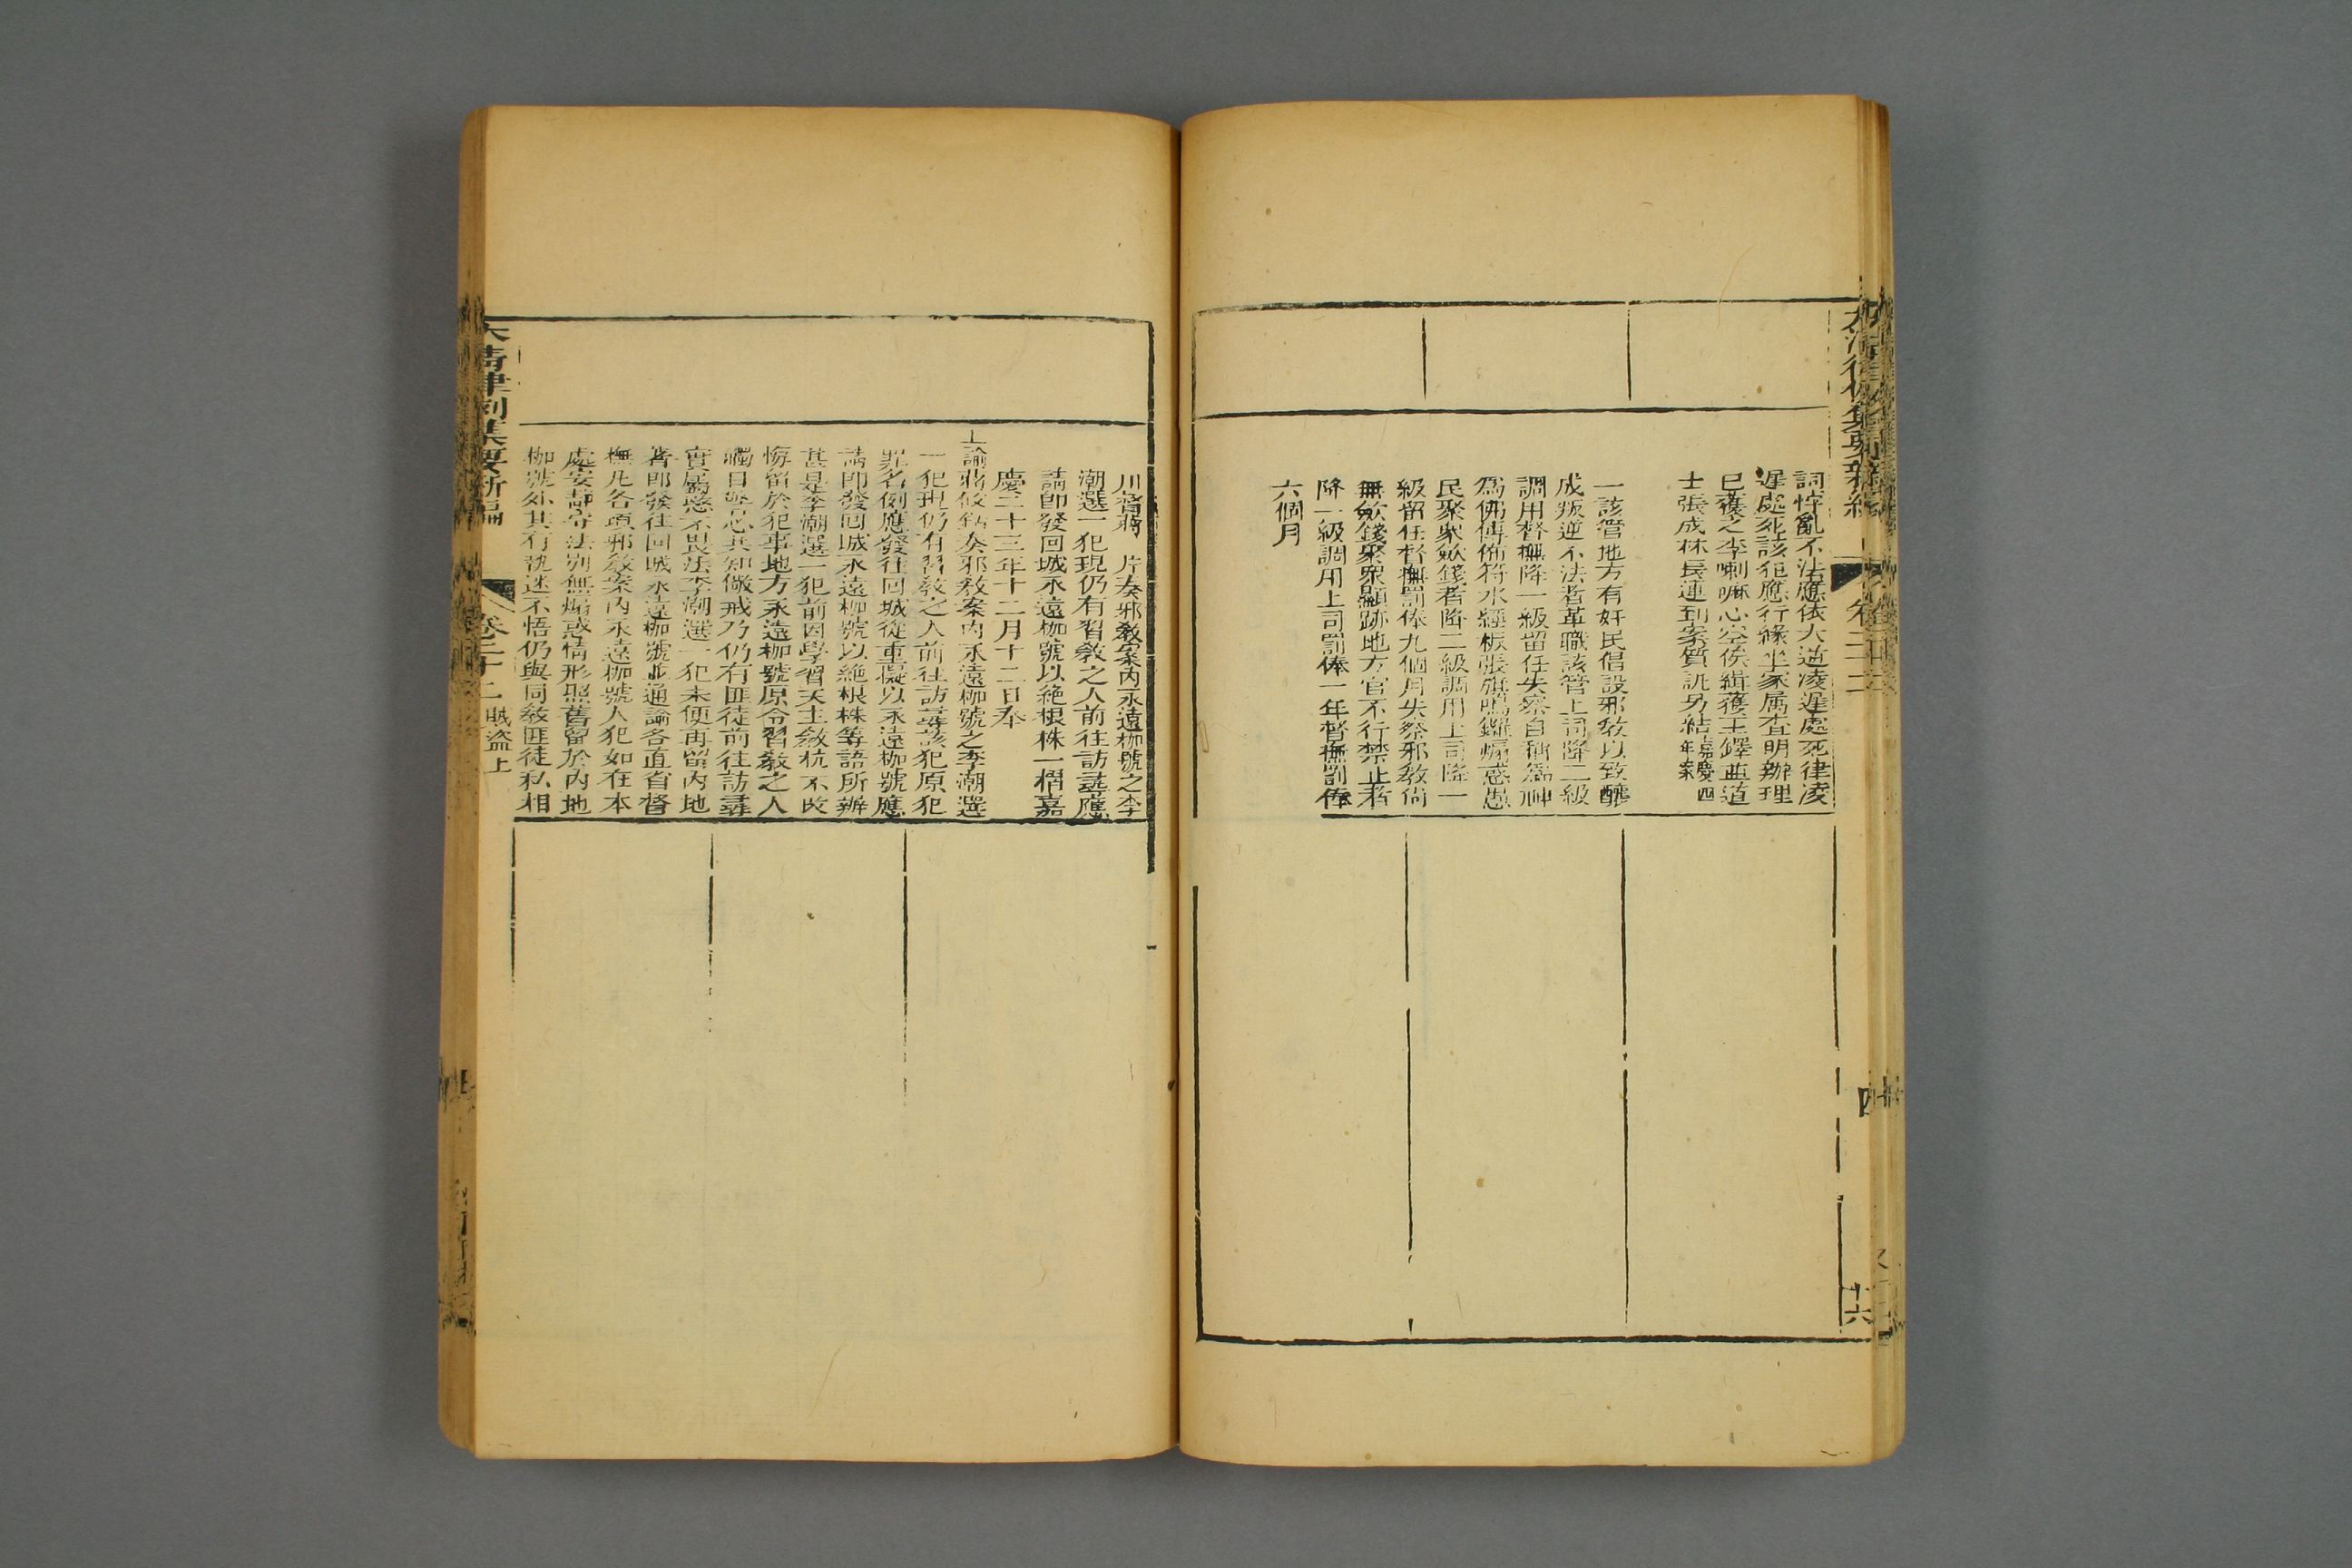 詞悖亂不法應依大逆凌遲處死律凌
遲處死該犯應行緣坐家属查明辦理
已獲之李喇嘛心空俟緝獲王鐸並道
士張成林長連到案質訊另結嘉慶四年案
一該管地方有奸民倡設邪教以致釀
成叛逆不法者革職該管上司降二級
調用督撫降一級留任失察自稱為神
為佛傳佈符水經板張旗鳴鑼煽惑愚
民聚衆歛錢者降二級調用上司降一
級留任督撫罰俸九個月失察邪教尚
無歛錢聚衆顯跡地方官不行禁止者
降一級調用上司罰俸一年督撫罰俸
六個月
十六
川督蔣 片奏邪教案内永遠枷號之李
潮選一犯現仍有習教之人前往訪尋應
請卽發回城永遠枷號以絶根株一摺嘉
慶二十三年十二月十二日奉
上諭蔣攸銛奏邪教案内永遠枷號之李潮選
一犯現仍有習教之人前往訪尋該犯原犯
罪名例應發往回城從重擬以永遠枷號應
請卽發回城永遠枷號以絶根株等語所辦
甚是李潮選一犯前因學習天主教抗不改
悔留於犯事地方永遠枷號原令習教之人
觸目警心共知儆戒乃仍有匪徒前往訪尋
實屬愍不畏法李潮選一犯未便再留内地
著卽發往回城永遠枷號並通諭各直省督
撫凡各項邪教案内永遠枷號人犯如在本
處安靜守法別無煽惑情形照舊留於内地
枷號外其有執迷不悟仍與同教匪徒私相
大清律例集要新編 卷二十二 賊盜上